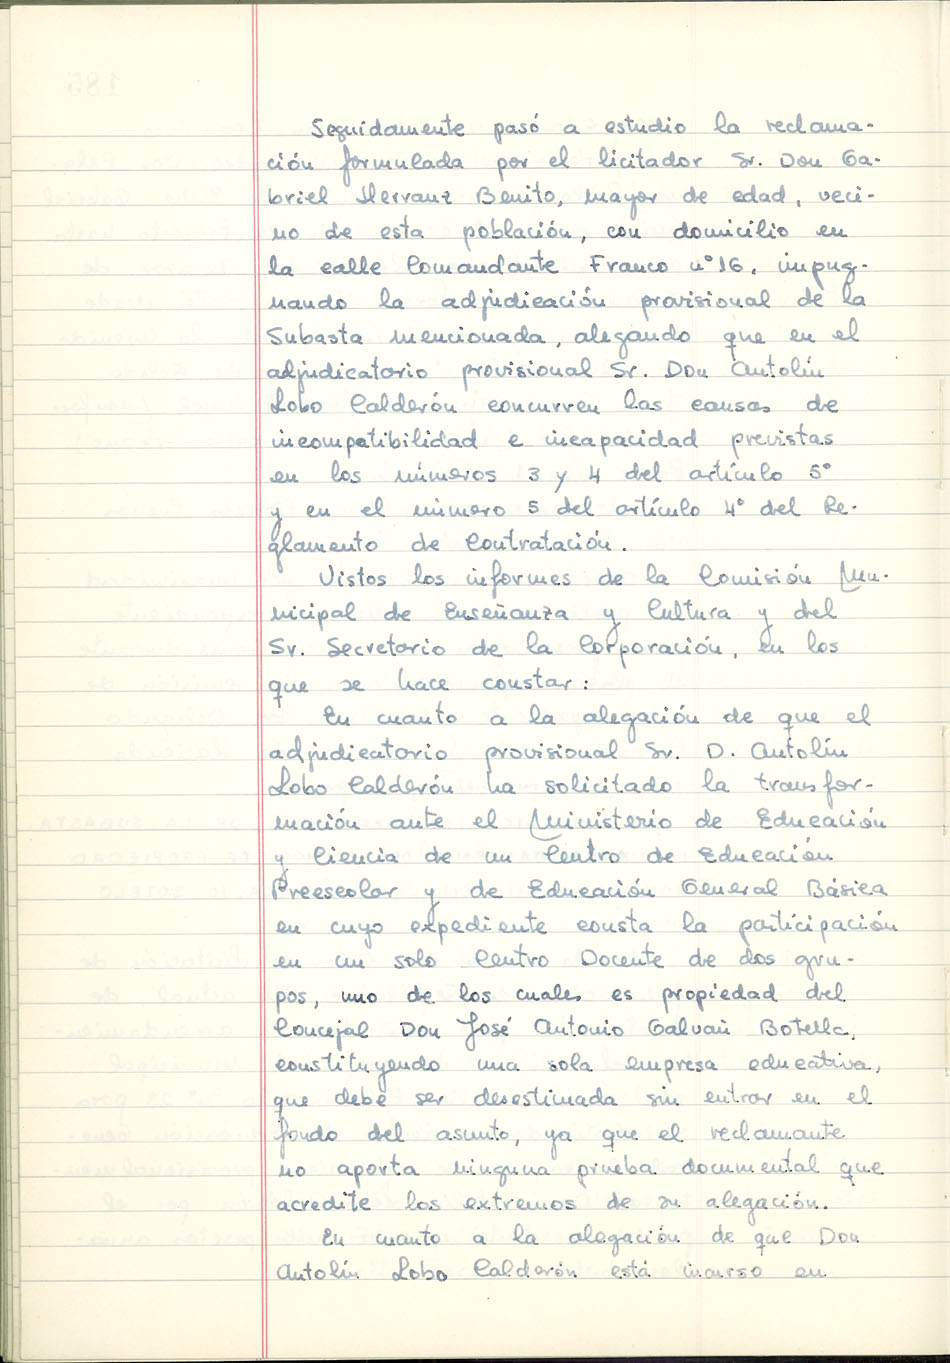 Seguidamente pasó a estudio la reclama-
ción formulada por el licitador Sr. Don Ga-
briel Herranz Benito, mayor de edad, veci-
no de esta población, con domicilio en
la calle Comandante Franco nº 16, impug-
nando la adjudicación provisional de la
Subasta mencionada, alegando que en el
adjudicatorio provisional Sr. Don Antolín
Lobo Calderón concurren las causas de
incompatibilidad e incapacidad previstas
en los números 3 y 4 del artículo 5º
y en el número 5 del artículo 4º del Re-
glamento de Contratación.
Vistos los informes de la Comisión Mu-
nicipal de Enseñanza y Cultura y del
Sr. Secretario de la Corporación, en los
que se hace constar:
En cuanto a la alegación de que el
adjudicatorio provisional Sr. D. Antolín
Lobo Calderón ha solicitado la transfor-
mación ante el Ministerio de Educación
y Ciencia de un Centro de Educación
Preescolar y de Educación General Básica
en cuyo expediente consta la participación
en un solo Centro Docente de dos gru-
pos, uno de los cuales es propiedad del
Concejal Don José Antonio Galvañ Botella,
constituyendo una sola empresa educativa,
que debe ser desestimada sin entrar en el
fondo del asunto, ya que el reclamante
no aporta ninguna prueba documental que
acredite los extremos de su alegación.
En cuanto a la alegación de que Don
Antolín Lobo Calderón está incurso en